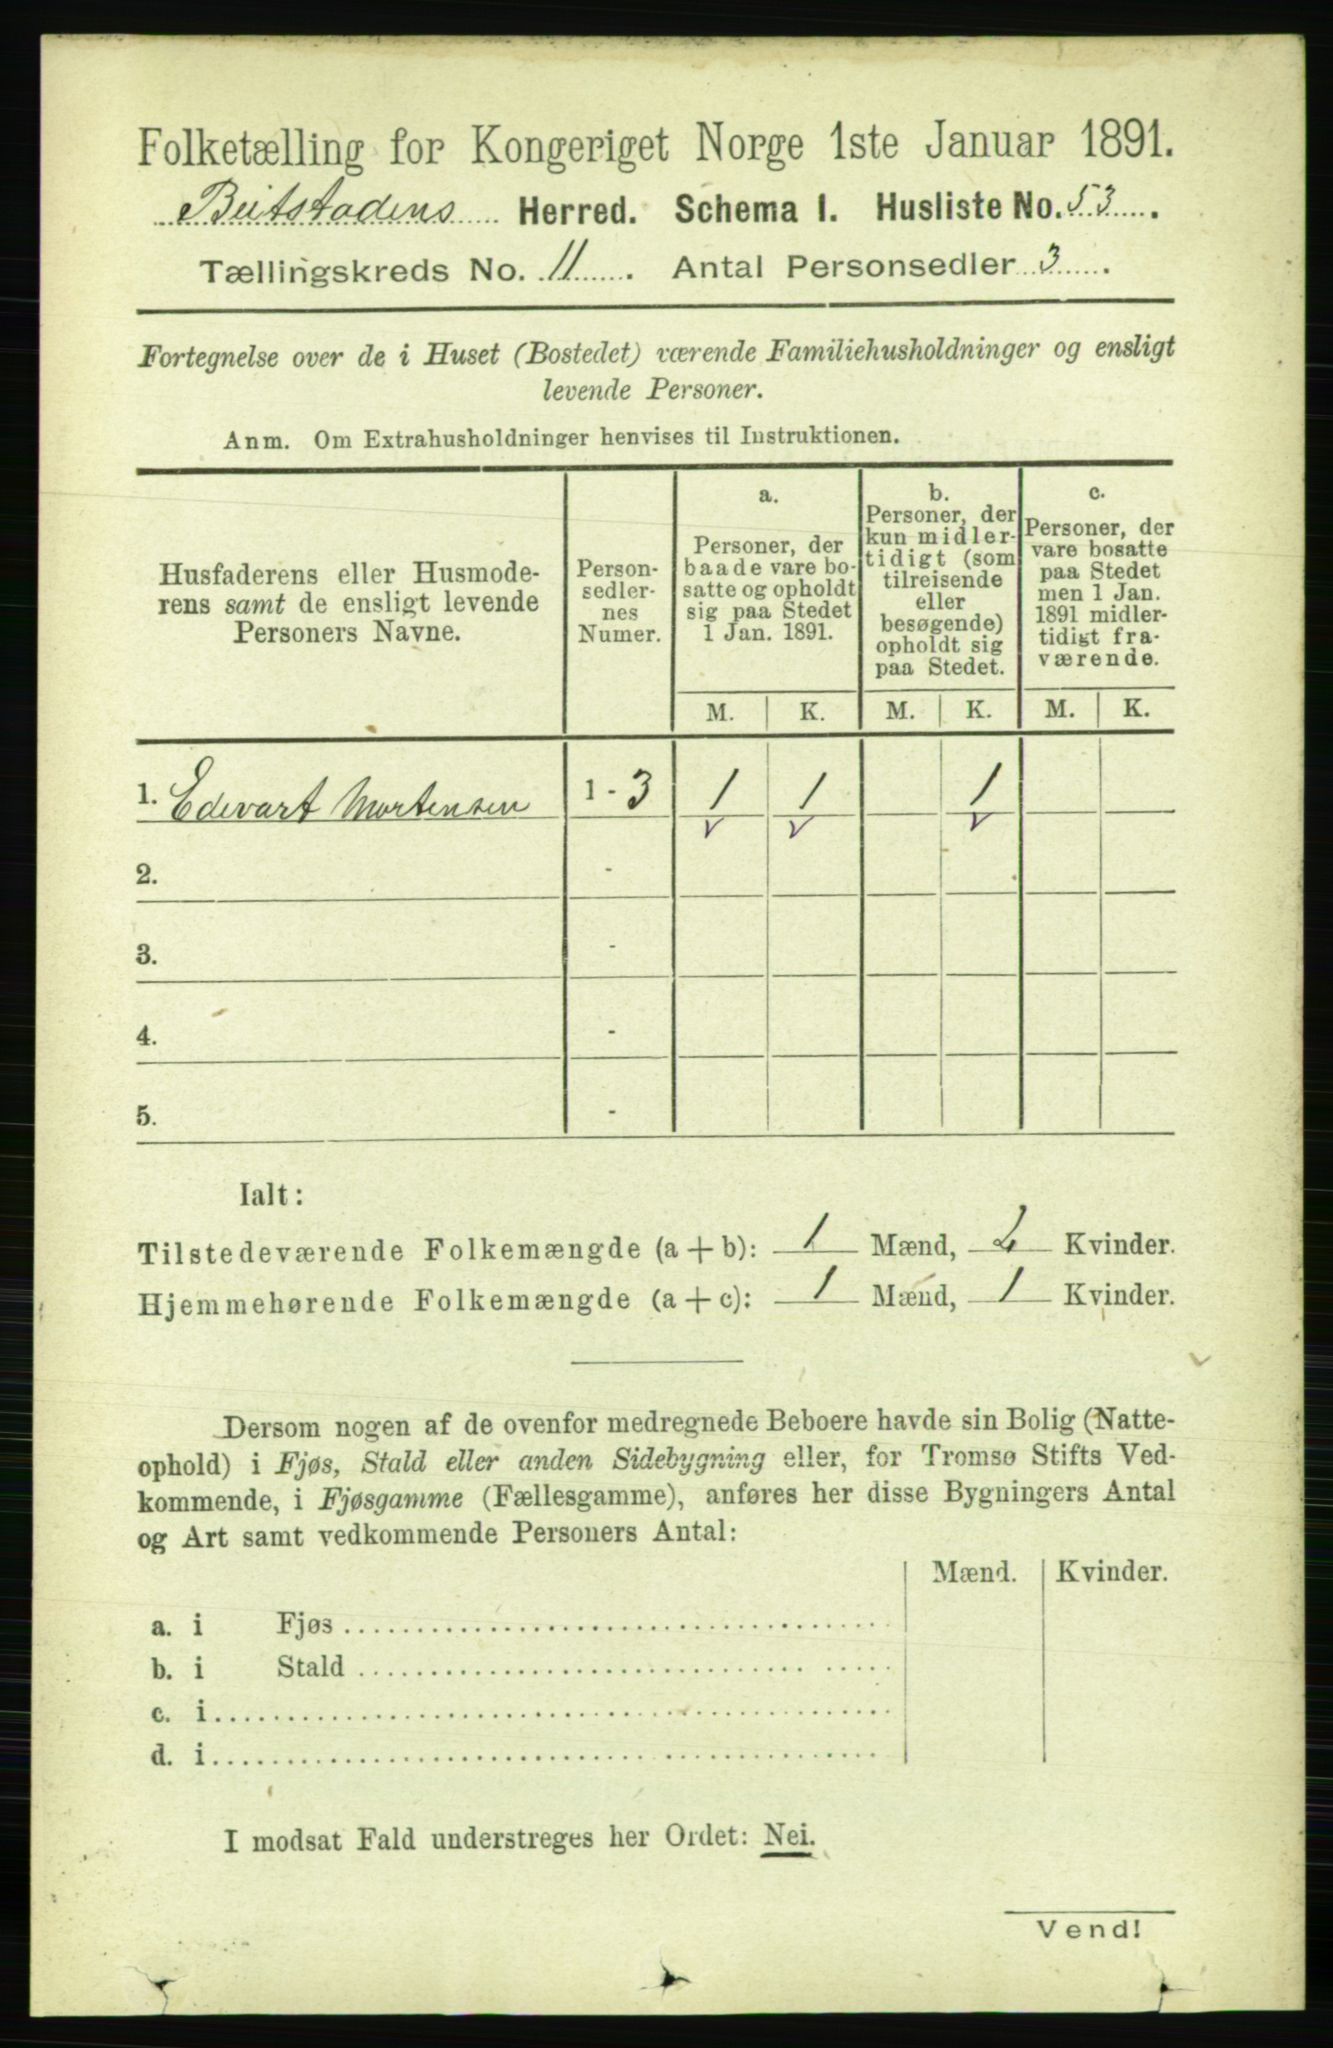 Folketælling for Kongeriget Norge 1ste Januar 1891.
Beitstadens Herred. Schema I. Husliste No. 53.
Tællingskreds No. 11. Antal Personsedler 3.
Fortegnelse over de i Huset (Bostedet) værende Familiehusholdninger og ensligt
levende Personer.
Anm. Om Extrahusholdninger henvises til Instruktionen.
Husfaderens eller Husmode-
rens samt de ensligt levende
Personers Navne.
Person-
sedler-
nes
Numer.
a.
Personer, der
baade vare bo-
satte og opholdt
sig paa Stedet
1 Jan. 1891.
b.
Personer, der
kun midler-
tidigt (som
tilreisende
eller
besøgende)
opholdt sig
paa Stedet.
c.
Personer, der
vare bosatte
paa Stedet
men 1 Jan.
1891 midler-
tidigt fra-
værende.
M. K. M. K. M. K.
1. Edevart Mortensen 1 - 3 1 1 1
2. -
3. -
4. -
5. -
Ialt:
Tilstedeværende Folkemængde (a + b): 1 Mænd, 2 Kvinder.
Hjemmehørende Folkemængde (a + c): 1 Mænd, 1 Kvinder.
Dersom nogen af de ovenfor medregnede Beboere havde sin Bolig (Natte-
ophold) i Fjøs, Stald eller anden Sidebygning eller, for Tromsø Stifts Ved-
kommende, i Fjøsgamme (Fællesgamme), anføres her disse Bygningers Antal
og Art samt vedkommende Personers Antal:
Mænd. Kvinder.
a. i Fjøs
b. i Stald
c. i
d. i
I modsat Fald understreges her Ordet: Nei.
Vend!